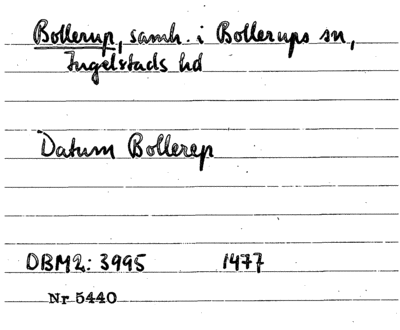 Bollerup, samh. i Bollerups sn,
Ingelstads hd
Datum Bollerep
DBM2: 3995 1477
Nr 5440